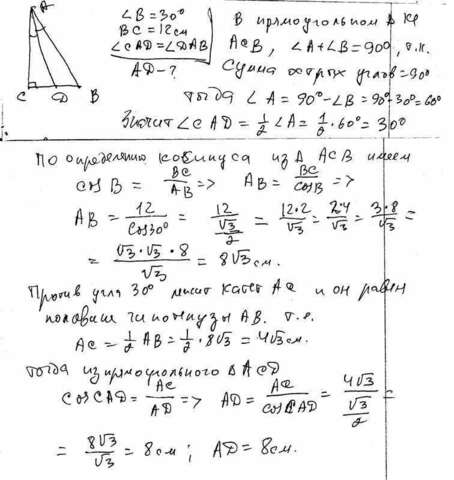 A
C D B
∠B = 30°
BC = 12 см
∠CAD = ∠DAB
AD - ?
В прямоугольном Δ-ке
ACB, ∠A + ∠B = 90°, т.к.
Сумма острых углов = 90°
тогда ∠A = 90° - ∠B = 90° - 30° = 60°
Значит ∠CAD = 1/2 ∠A = 1/2 · 60° = 30°
По определению косинуса из Δ ACB имеем
cos B = BC/AB => AB = BC/cosB =>
AB = 12/cos30° = 12/(√3/2) = 12·2/√3 = 24/√3 = 3·8/√3 =
= √3·√3·8/√3 = 8√3 см.
Против угла 30° лежит катет AC и он равен
половине гипотенузы AB. т.е.
AC = 1/2 AB = 1/2 · 8√3 = 4√3 см.
тогда из прямоугольного Δ ACD
cos CAD = AC/AD => AD = AC/cos CAD = 4√3/(√3/2) =
= 8√3/√3 = 8 см ; AD = 8 см.